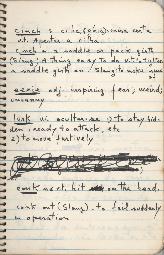 cinch s cincha,
cinch a a saddle or pack girth
(slang) a thing easy to do v.t. to
a saddle girth on; slang to make sure
eerie adj. inspiring fear; weird;
uncanny
lurk vi ocultarse 1) to stay hid-
den, ready to attack, etc
2) to move furtively
conk n & vt. hit on the head.
conk out (slang). to fail suddenly
in operation